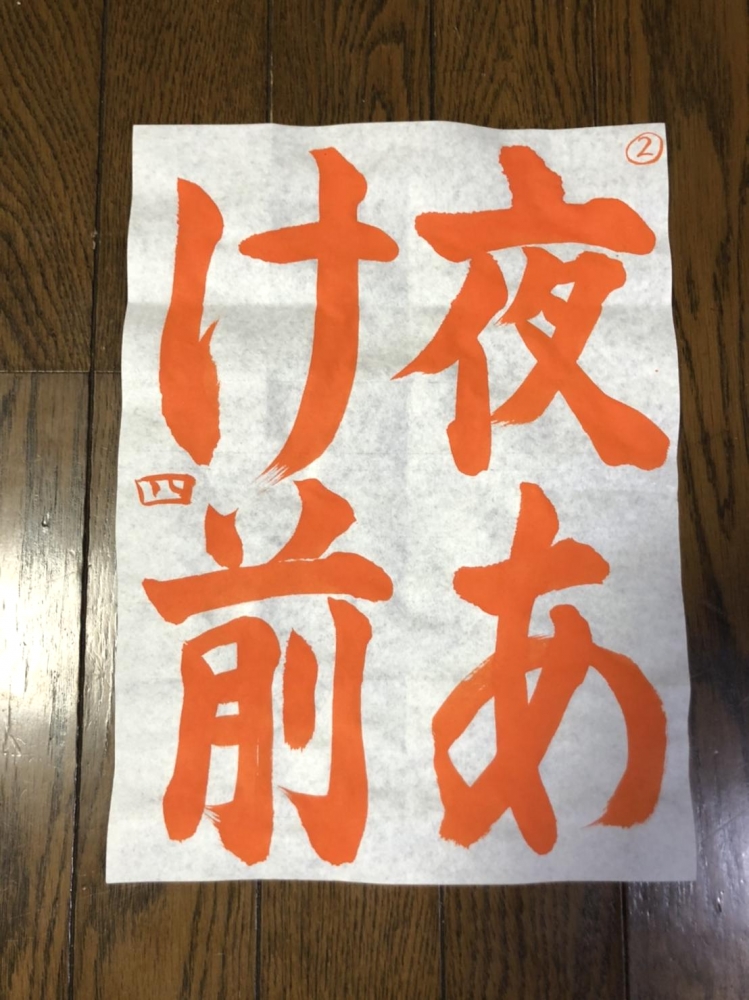 ②
夜あ
け前
四